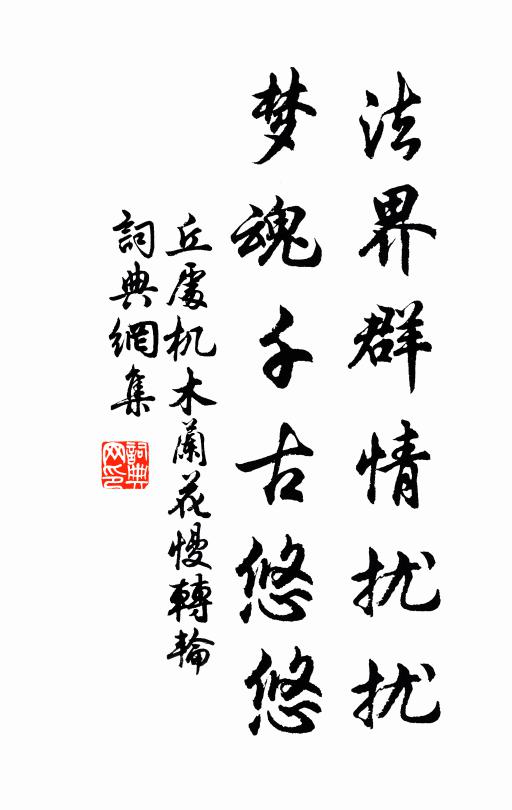 法界群情扰扰
梦魂千古悠悠
丘處机木蘭花慢轉輪
詞典網集
詞典网印